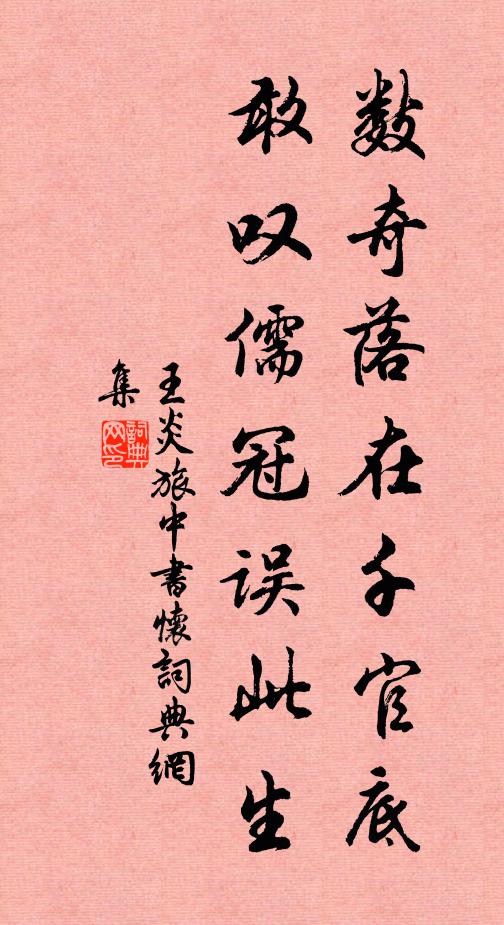 数奇落在千官底
敢叹儒冠误此生
王炎旅中書懷詞典網
集
詞典網印